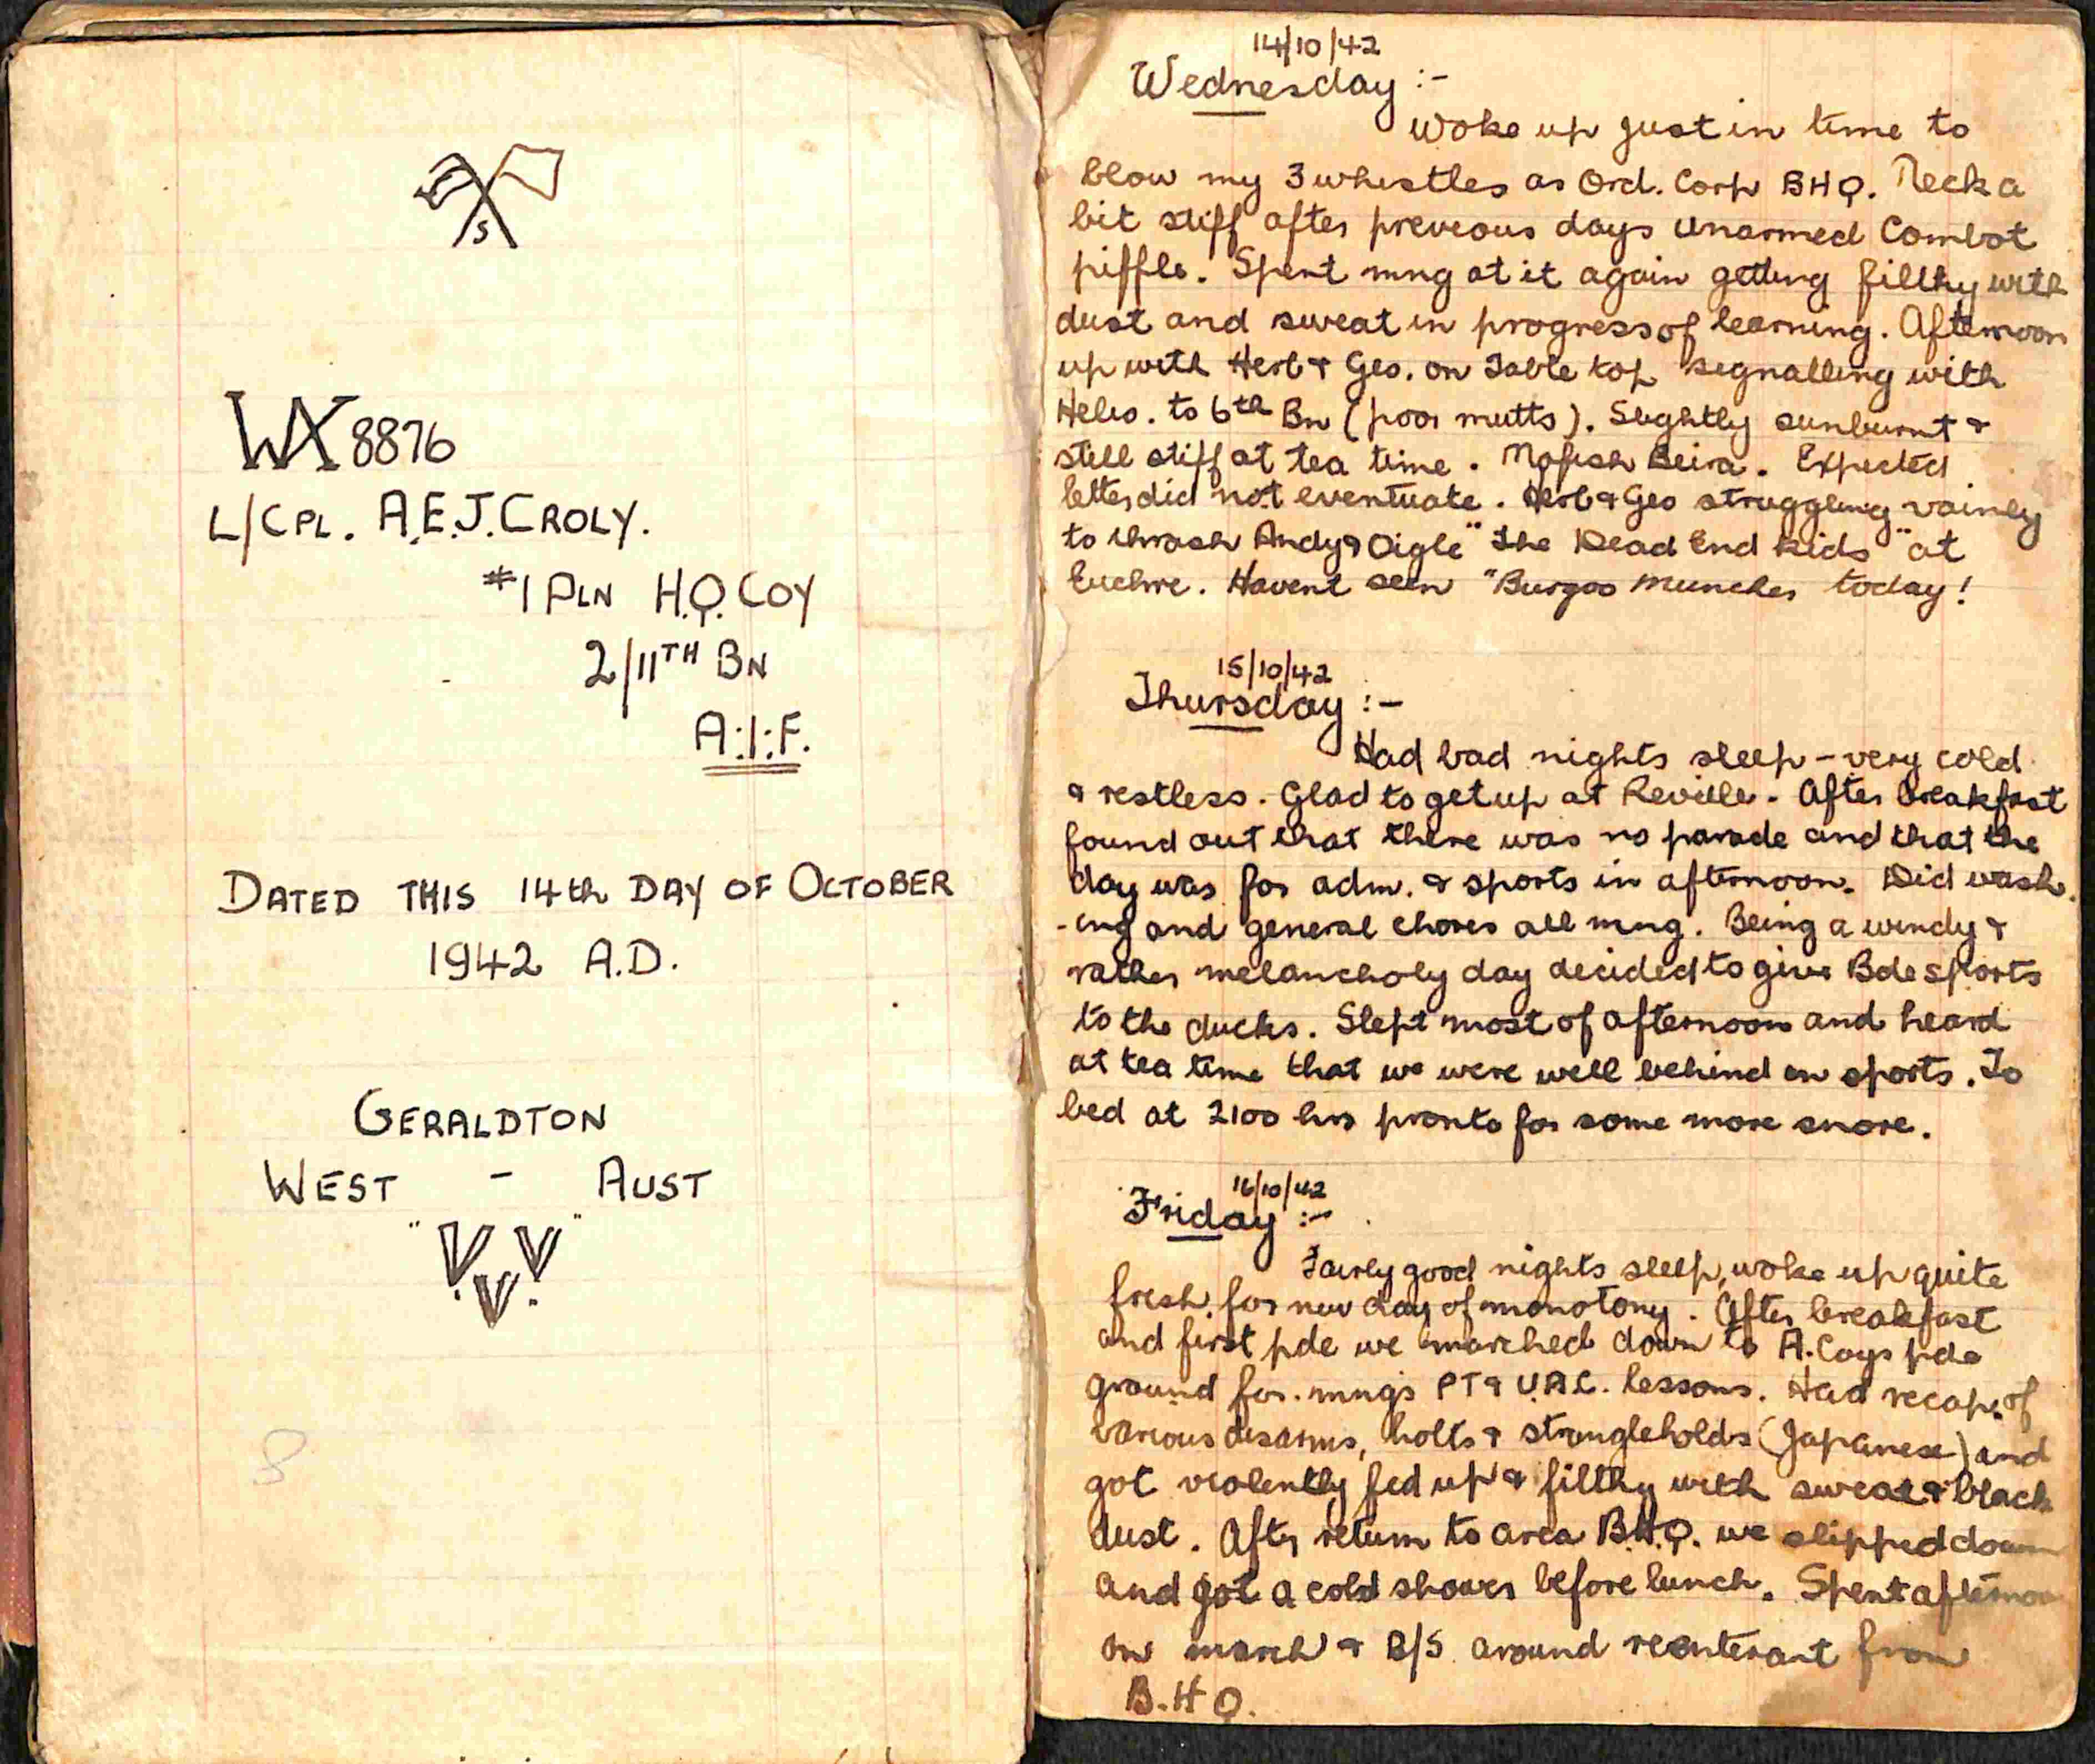 S
WX 8876
L/CPL. A.E.J. CROLY.
#1 PLN H.Q. COY
2/11TH BN
A:I:F.
DATED THIS 14th DAY OF OCTOBER
1942 A.D.
GERALDTON
WEST - AUST
"V.V.V."
8
14/10/42
Wednesday :-
Woke up just in time to
blow my 3 whistles as Ord. Corp BHQ. Neck a
bit stiff after previous days Unarmed Combat
piffle. Spent mng at it again getting filthy with
dust and sweat in progress of learning. Afternoon
up with Herb & Geo. on Table top signalling with
Helio. to 6th Bn (poor mutts). Slightly sunburnt &
still stiff at tea time. Mafish Beira. Expected
letter did not eventuate. Herb & Geo struggling vainly
to thrash Andy & Oigle "The Dead End Kids" at
Euchre. Havent seen "Burgoo Muncher today!
15/10/42
Thursday :-
Had bad nights sleep - very cold
& restless. Glad to get up at Reville. After breakfast
found out that there was no parade and that the
day was for adm. & sports in afternoon. Did wash
-ing and general chores all mng. Being a windy &
rather melancholy day decided to give Bde sports
to the ducks. Slept most of afternoon and heard
at tea time that we were well behind on sports. To
bed at 2100 hrs pronto for some more snore.
16/10/42
Friday :-
Fairly good nights sleep, woke up quite
fresh for new day of monotony. After breakfast
and first pde we marched down to A. Coys pde
ground for mngs PT & U.A.C. lessons. Had recap. of
various disarms, holts & strangleholds (Japanese) and
got violently fed up & filthy with sweat & black
dust. After return to area B.H.Q. we slipped down
and got a cold shower before lunch. Spent afternoon
on march & B/S around from
B.H.Q.